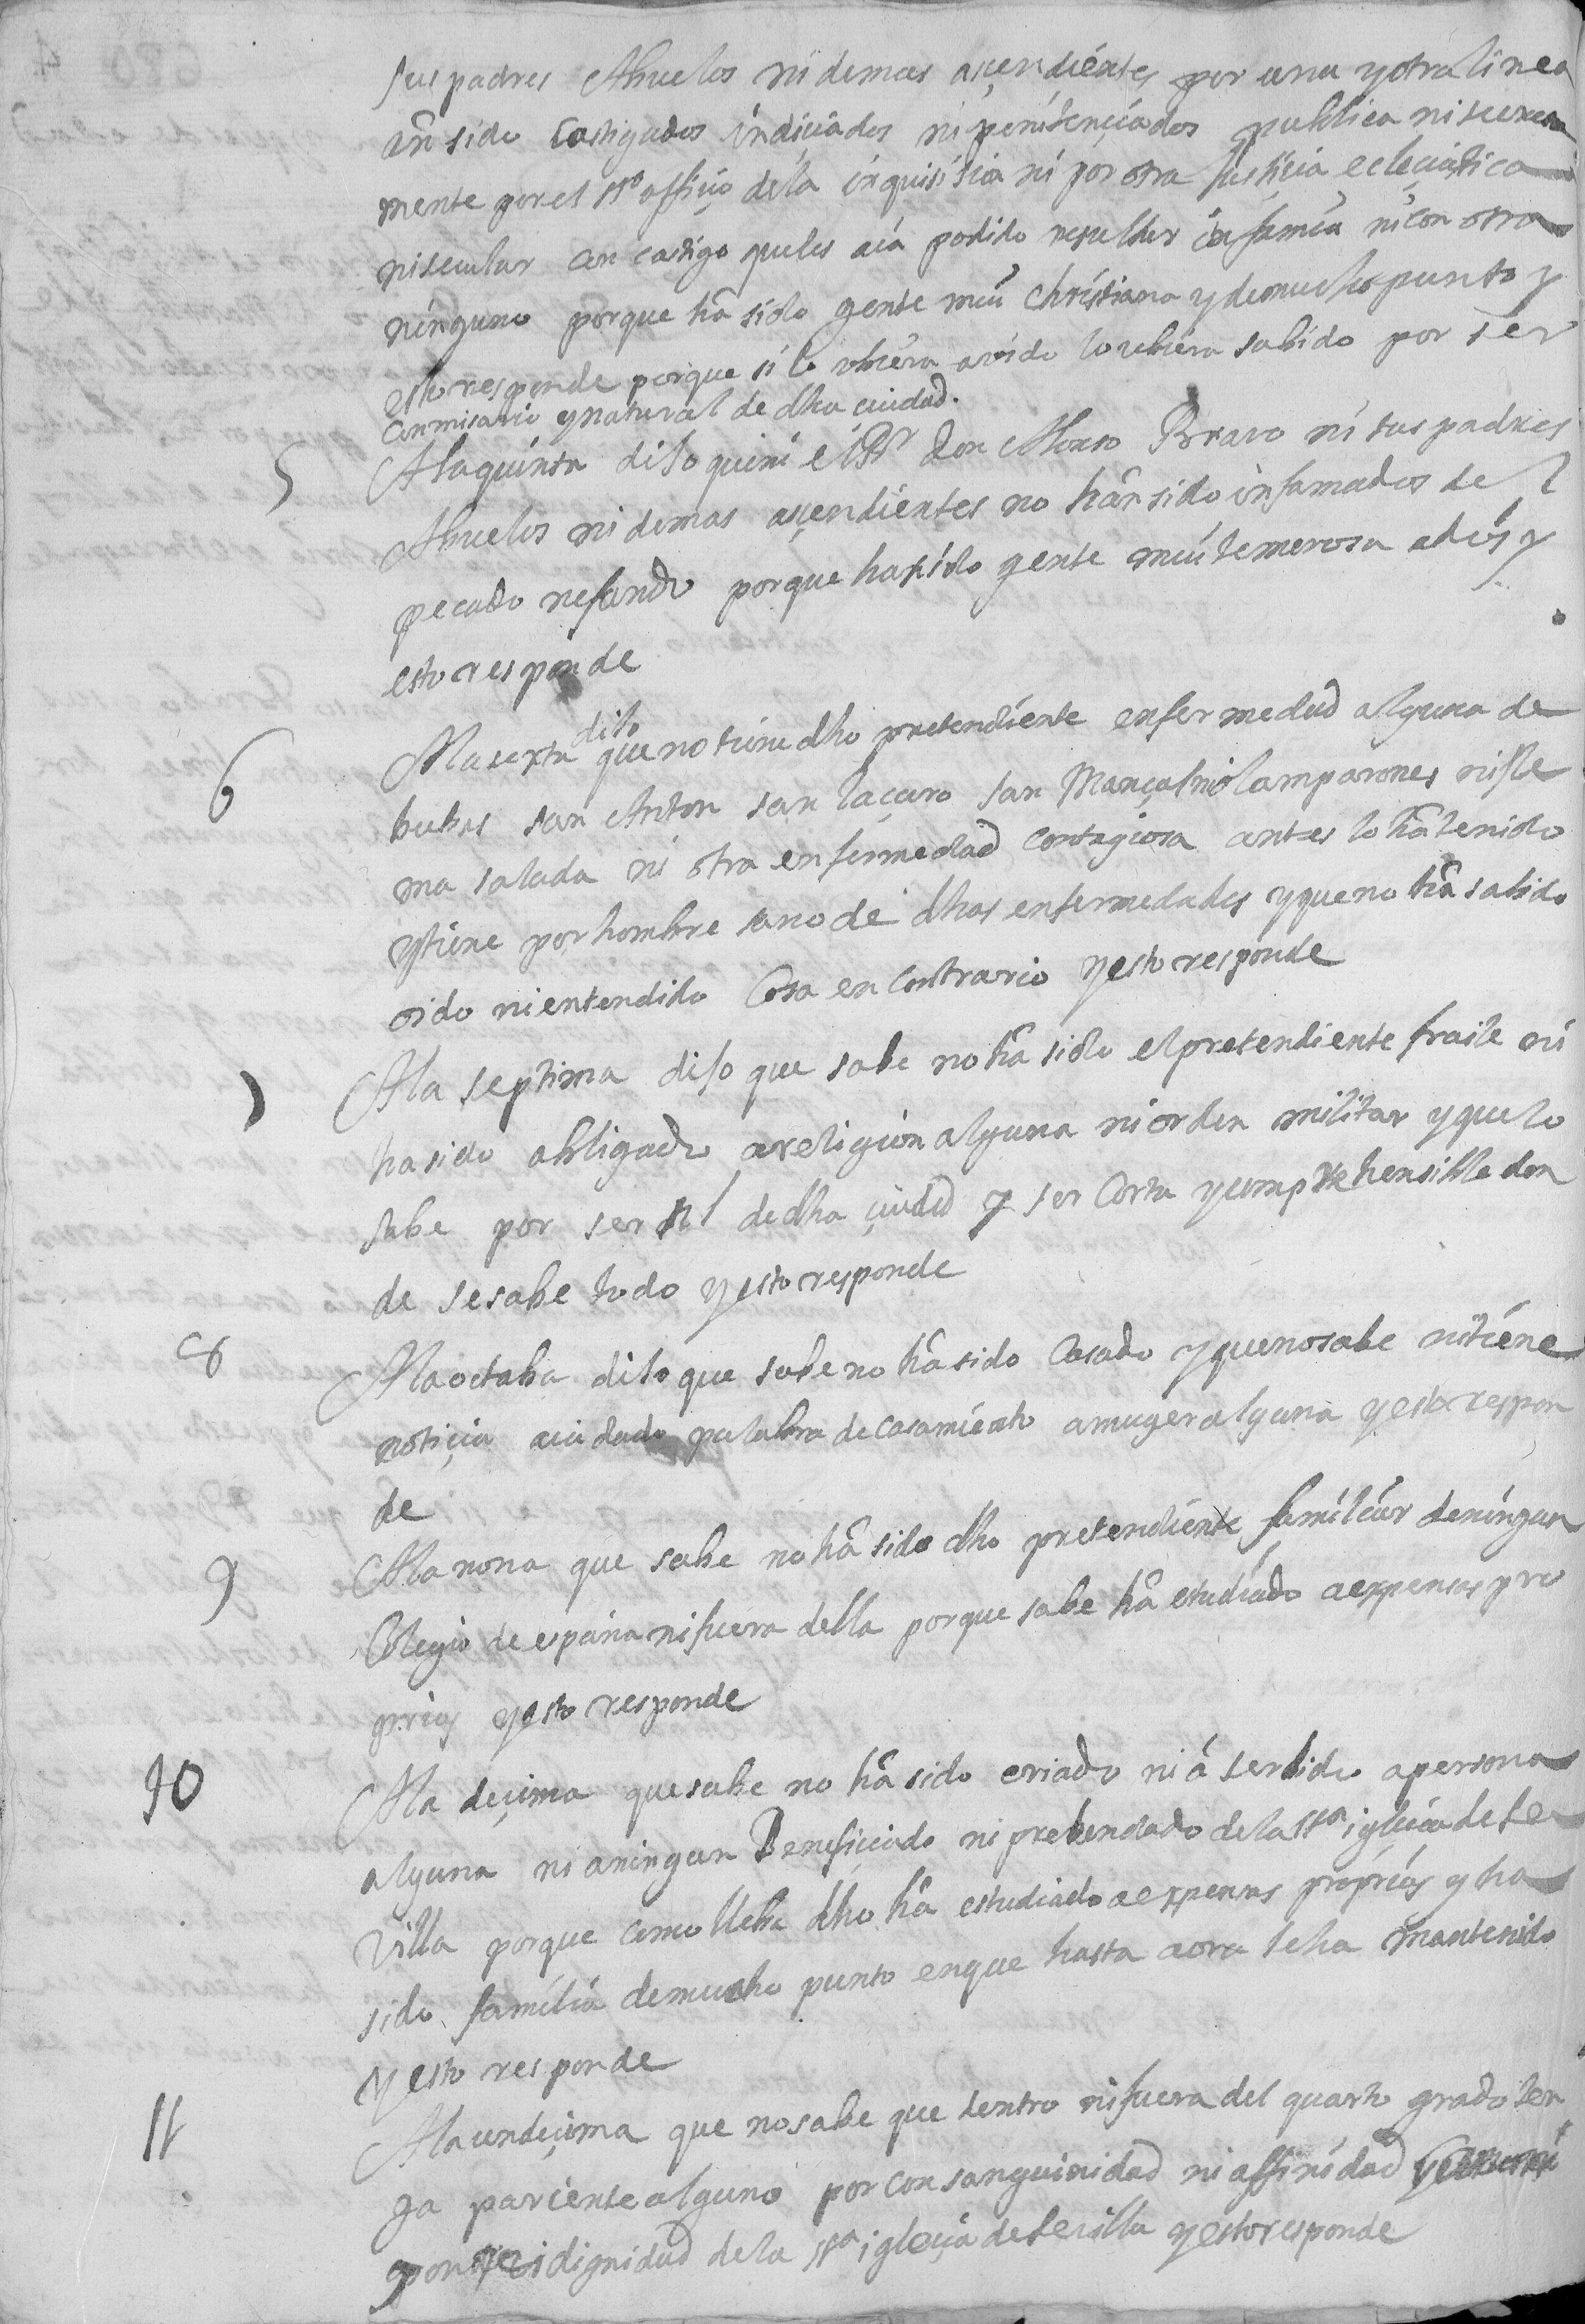 sus padres Abuelos ni demas açendientes por una y otra linea
an sido castigados indiciados ni penitençiados publica ni secreta
mente por el sto offiçio de la inquisiçion ni por otra justicia ecleçiastica
ni secular con castigo que les aia podido resultar infamia ni con otro
ninguno porque ha sido gente mui christiana y de mucho punto y
esto responde porque si lo ubiera avido lo ubiera sabido por ser
commisario y natural de dha ciudad.
5 A la quinta dijo que ni el Don Alonso Bravo ni sus padres
Abuelos ni demas açendientes no han sido infamados del
pecado nefando porque ha sido gente mui temerosa a dios y
esto responde
6 A la sexta dijo que no tiene dho pretendiente enfermedad alguna de
bubas san Anton san laçaro san Mançal ni lamparones ni fle
ma salada ni otra enfermedad contagiosa antes lo ha tenido
y tiene por hombre sano de dhas enfermedades y que no ha sabido
oido ni entendido cosa en contrario y esto responde
7 A la septima dijo que sabe no ha sido el pretendiente fraile ni
ha sido obligado a religion alguna ni orden militar y que lo
sabe por ser nl de dha çiudad y ser corta y comprehensible don
de se sabe todo y esto responde
8 A la octaba dijo que sabe no ha sido casado y que no sabe ni tiene
notiçia aia dado palabra de casamiento a muger alguna y esto respon
de
9 A la nona que sabe no ha sido dho pretendiente familiar de ningun
Colegio de españa ni fuera della porque sabe ha estudiado a expensas pro
prias y esto responde
10 A la deçima que sabe no ha sido criado ni a serbido a persona
alguna ni a ningun Benefiçiado ni prebendado de la sta iglecia de Se
villa porque como lleba dho ha estudiado a expensas proprias y ha
sido familia de mucho punto en que hasta aora se ha mantenido
y esto responde
11 A la undeçima que no sabe que dentro ni fuera del quarto grado ten
ga pariente alguno por consanguinidad ni affinidad
dignidad de la sta igleçia de Sevilla y esto responde